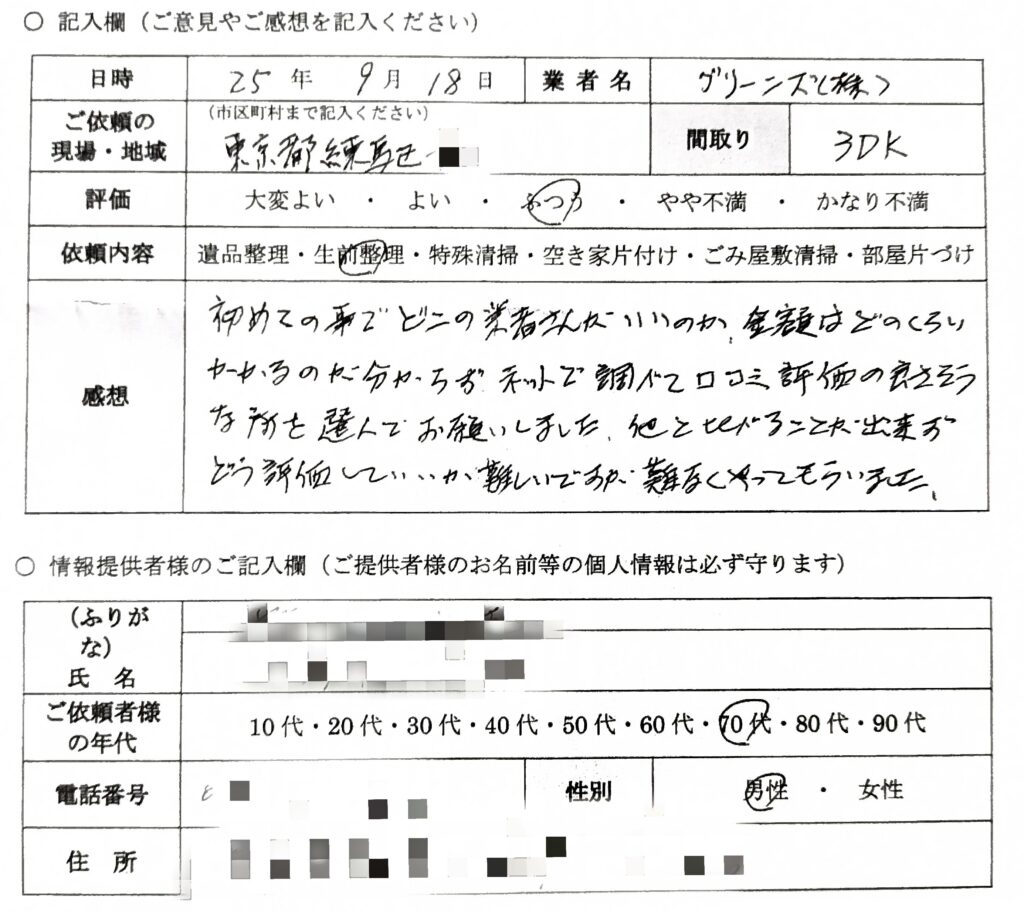 ○ 記入欄（ご意見やご感想を記入ください）
日時 25年 9月 18日 業者名 グリーンズ(株)
ご依頼の現場・地域 （市区町村まで記入ください） 東京都練馬区 間取り 3DK
評価 大変よい ・ よい ・ ふつう ・ やや不満 ・ かなり不満
依頼内容 遺品整理・生前整理・特殊清掃・空き家片付け・ごみ屋敷清掃・部屋片づけ
感想
初めての事でどこの業者さんがいいのか、金額はどのくらい
かかるのか分からず ネットで調べて口コミ評価の良さそう
な所を選んでお願いしました、他と比べることが出来ず
どう評価していいか難しいですが難なくやってもらいました、
○ 情報提供者様のご記入欄（ご提供者様のお名前等の個人情報は必ず守ります）
（ふりがな）
氏 名
ご依頼者様の年代 10代・20代・30代・40代・50代・60代・70代・80代・90代
電話番号 性別 男性 ・ 女性
住 所